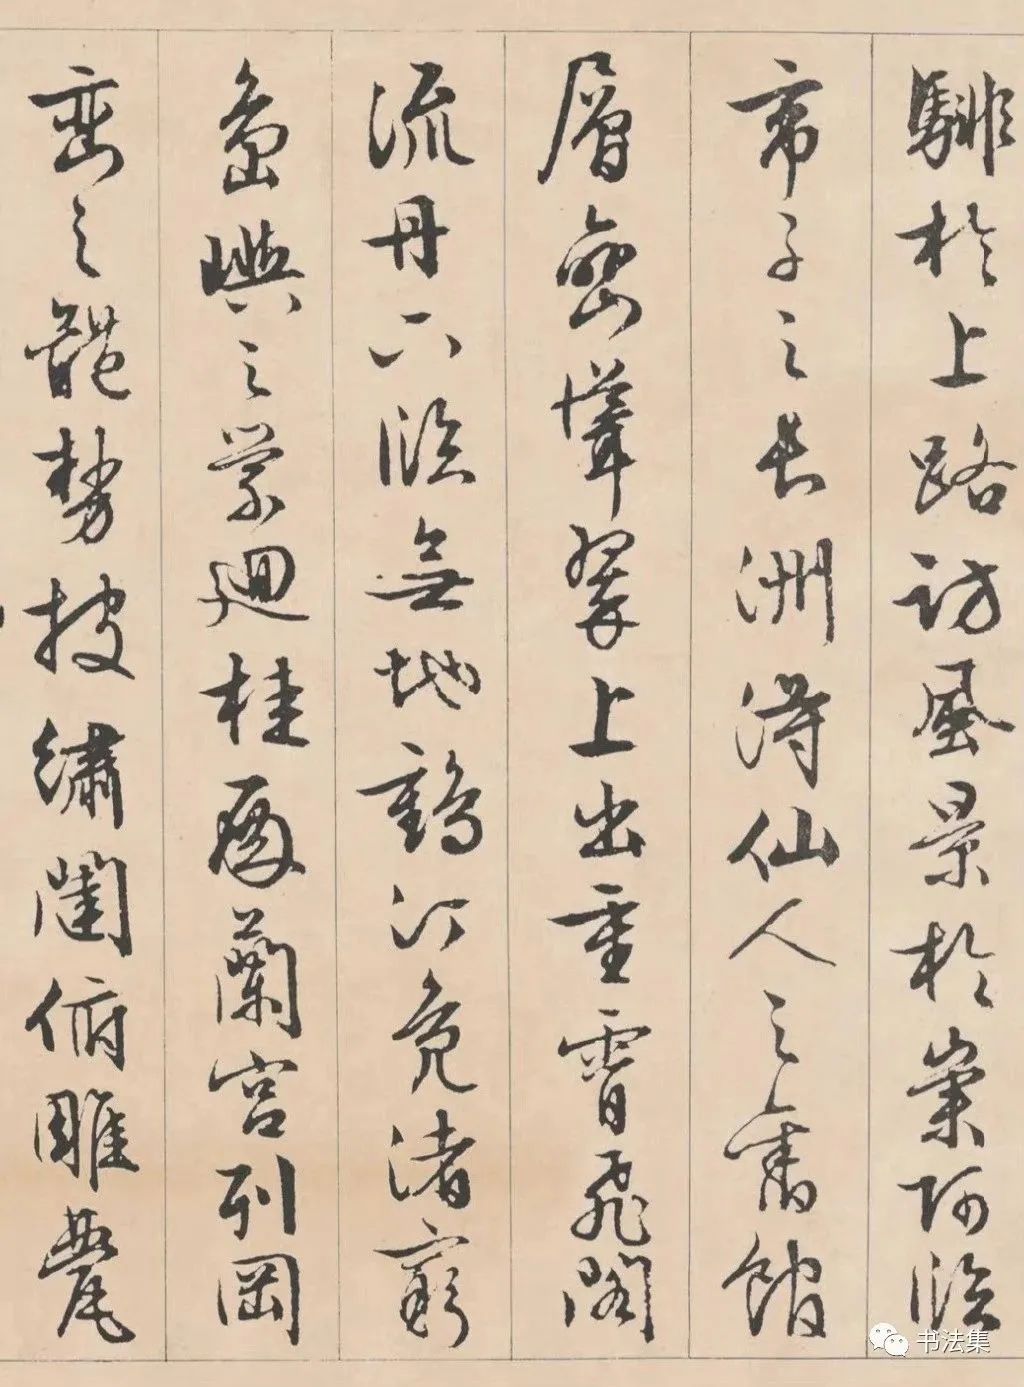 騑於上路訪風景於崇阿臨
帝子之長洲得仙人之舊館
層巒聳翠上出重霄飛閣
流丹下臨無地鶴汀鳧渚窮
島嶼之縈迴桂殿蘭宮列岡
巒之體勢披繡闥俯雕甍
书法集